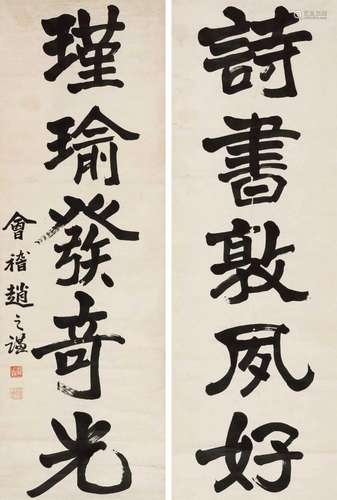 詩書敦夙好
瑾瑜發奇光
會稽趙之謙